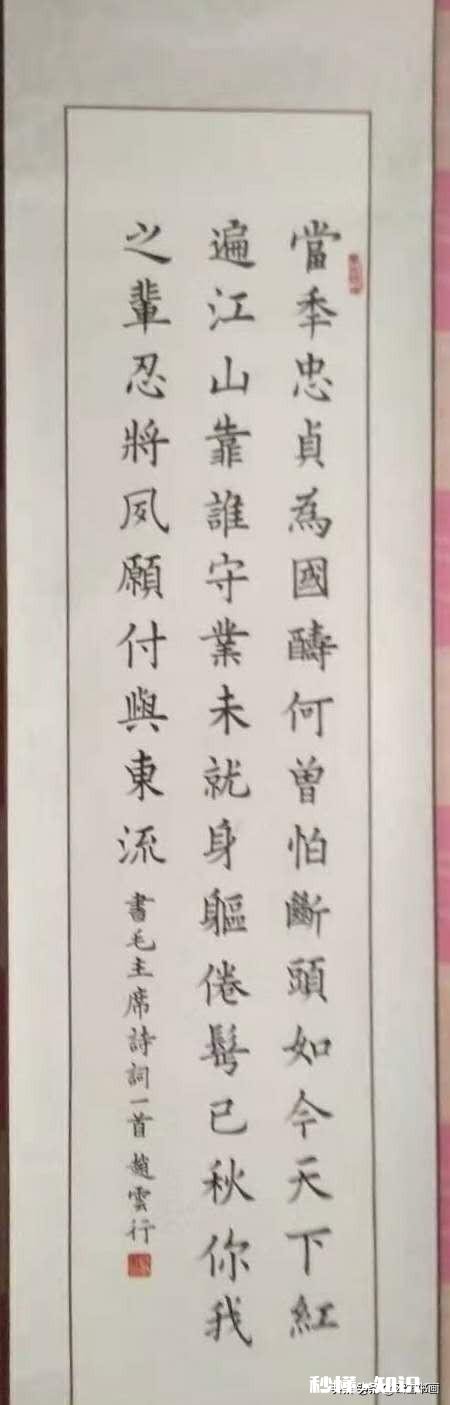 當秊忠貞為國酧何曾怕斷頭如今天下紅
遍江山靠誰守業未就身軀倦鬂已秋你我
之輩忍將夙願付與東流
書毛主席詩詞一首 趙雲行
秒懂 知识